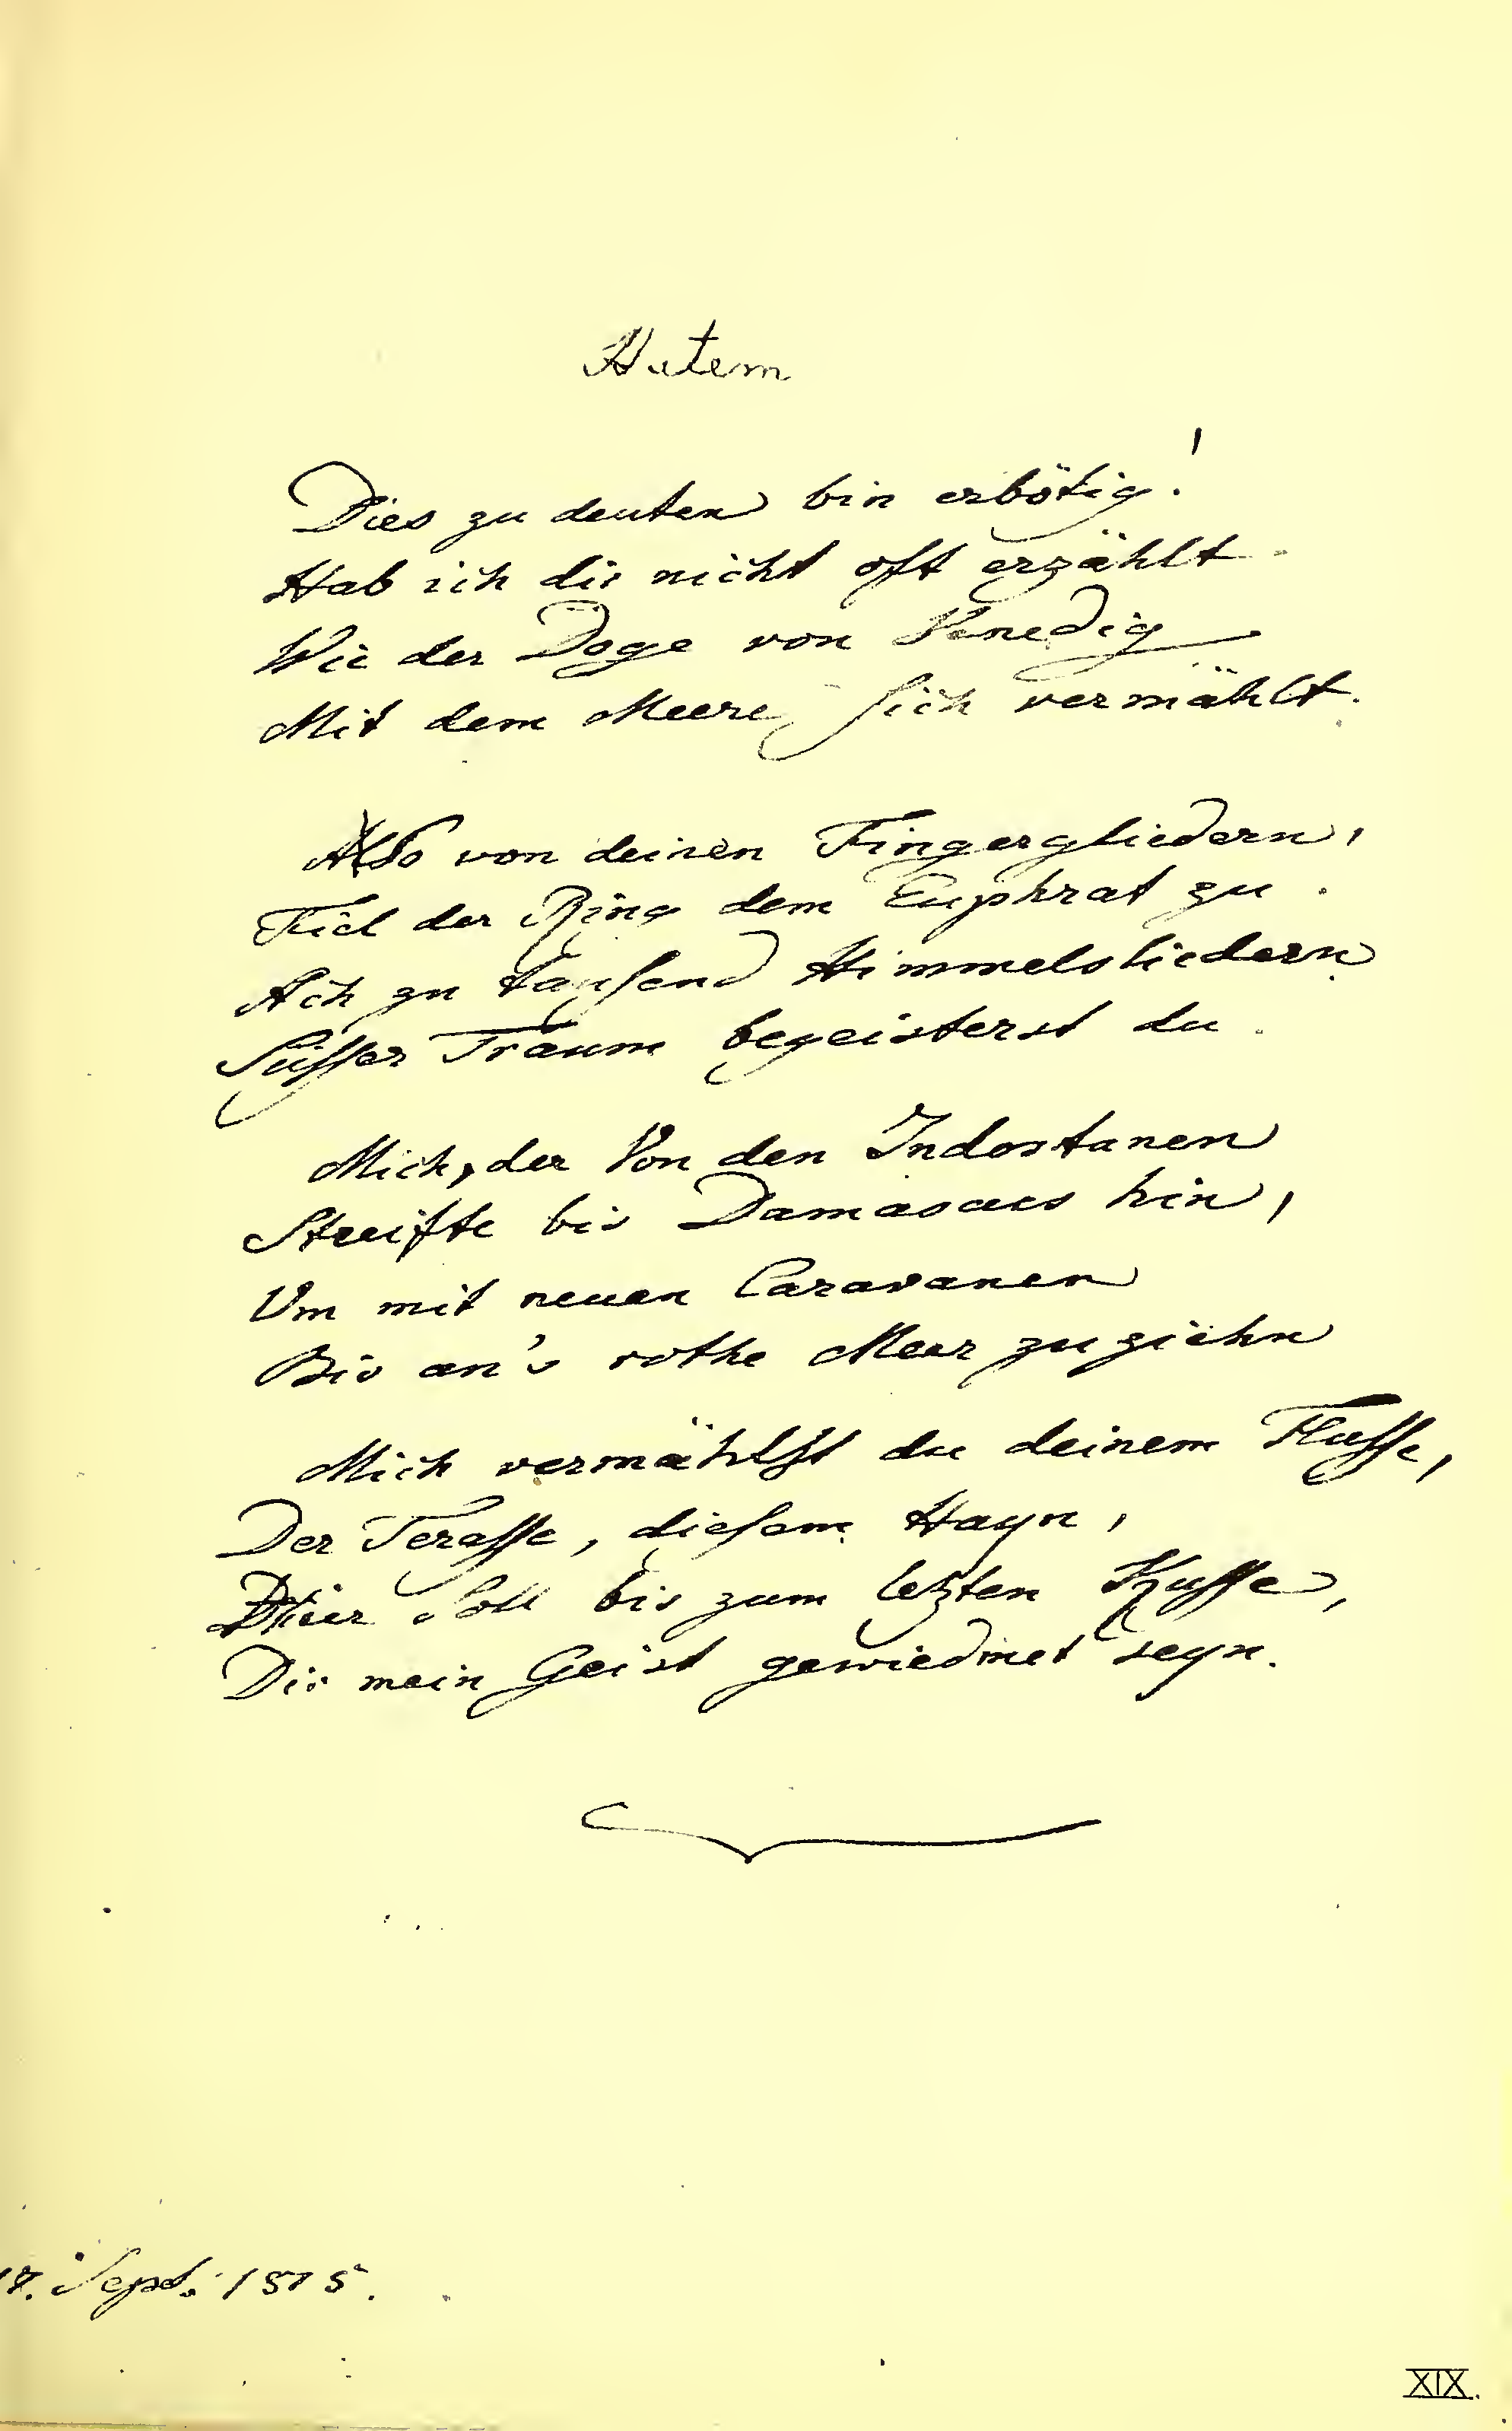 Hatem
Dies zu deuten bin erbötig!
Hab ich dir nicht oft erzählt
Wie der Doge von Venedig
Mit dem Meere sich vermählt.
Also von deinen Fingergliedern,
Fiel der Ring dem Euphrat zu.
Ach zu tausend Himmelsliedern
Süsser Traum begeisterst du.
Mich, der Von den Indostanen
Streifte bis Damascus hin,
Um mit neuen Caravanen
Bis an's rothe Meer zu ziehn
Mich vermählst du deinem Flusse,
Der Terasse, diesem Hayn,
Hier soll bis zum letzten Kusse,
Dir mein Geist gewiedmet seyn.
17. Sept. 1815.
XIX.